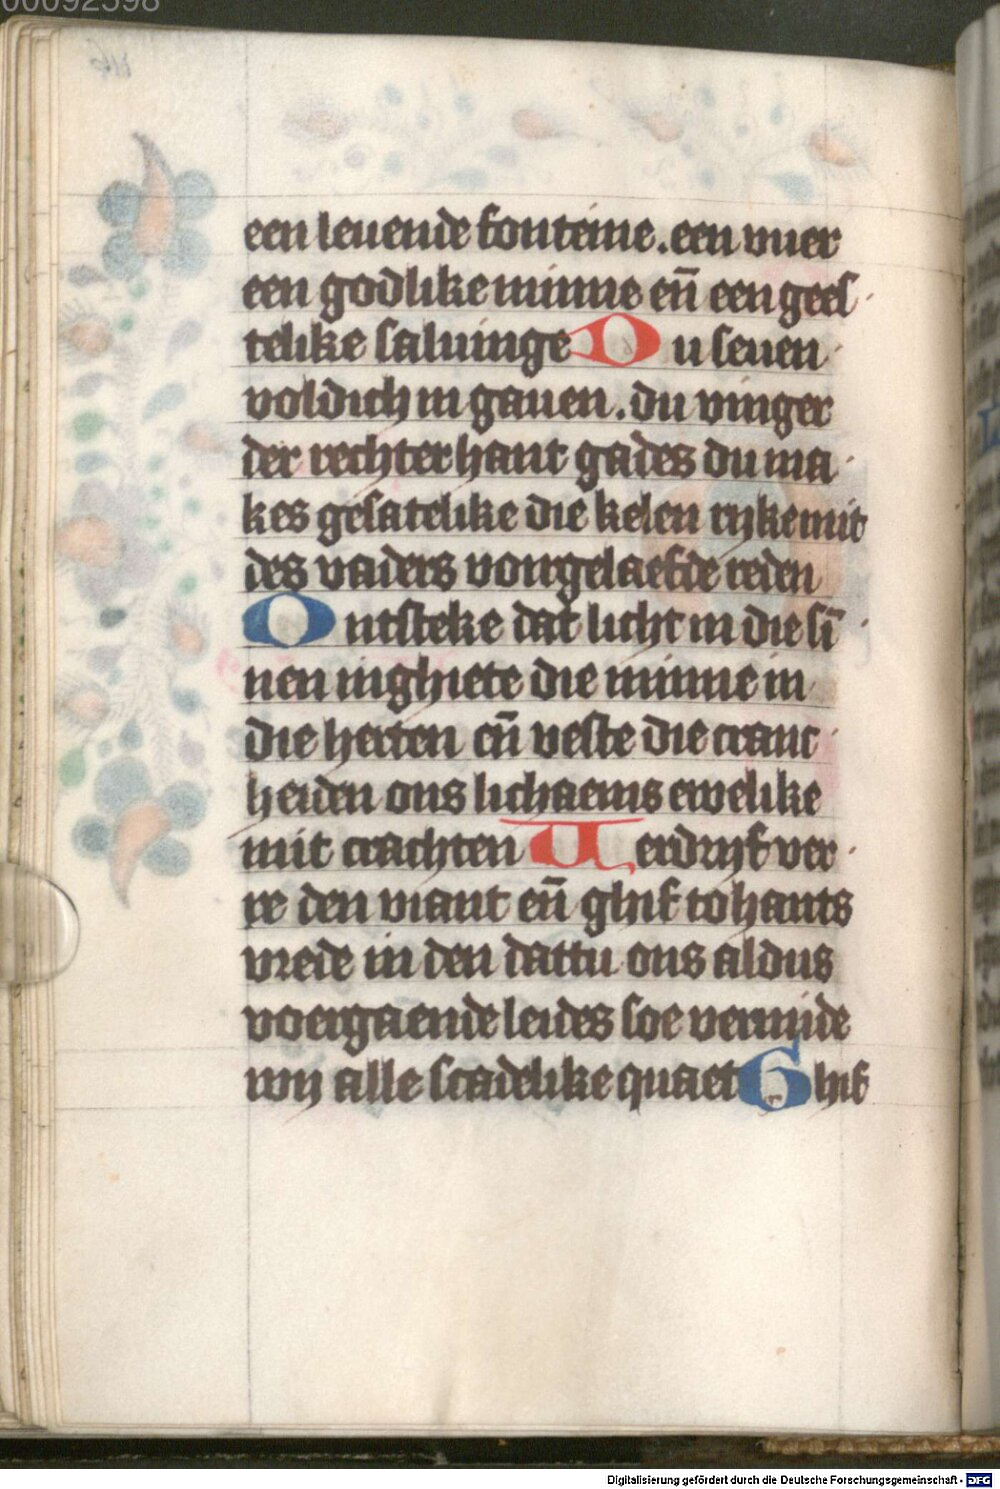 00092598
een leuende fonteine. een vuer
een godlike minne en̄ een gees
telike saluinge Du seuen
voldich in gauen. du vinger
der rechter hant gades du ma
kes gesatelike die kelen ryke mit
des vaders vorgelaefde reden
Ontsteke dat licht in die si̅
nen inghiete die minne in
die herten en̄ veste die cranc
heiden ons lichaems ewelike
mit crachten Verdryf ver
re den viant en̄ ghif tohants
vrede in den dattu ons aldus
voergaende leides soe vermide
wy alle scadelike quaet Ghif
Digitalisierung gefördert durch die Deutsche Forschungsgemeinschaft - DFG